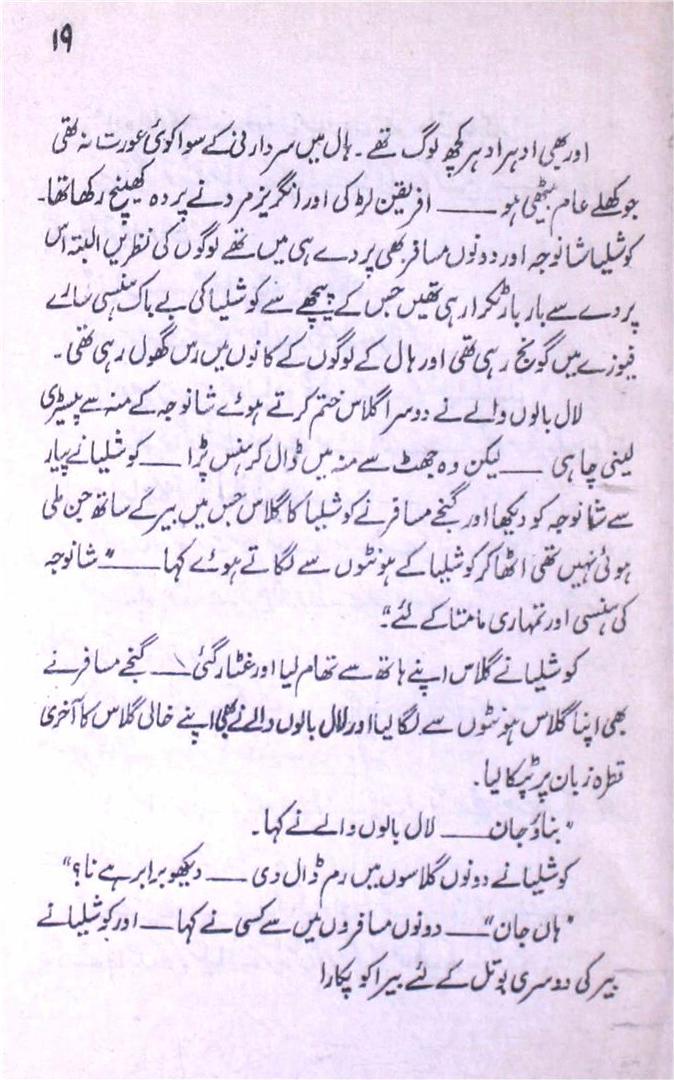 ۱۹
اور بھی ادہر ادہر کچھ لوگ تھے۔ ہال میں سردارنی کے سوا کوئی عورت نہ تھی
جو کھلے عام بیٹھی ہو ــــ افریقین لڑکی اور انگریز مرد نے پردہ کھینچ رکھا تھا۔
کوشلیا شانوجہ اور دونوں مسافر بھی پردے ہی میں تھے لوگوں کی نظریں البتہ اس
پردے سے بار بار ٹکرا رہی تھیں جس کے پیچھے سے کوشلیا کی بے باک ہنسی سارے
فیوزے میں گونج رہی تھی اور ہال کے لوگوں کے کانوں میں رس گھول رہی تھی۔
لال بالوں والے نے دوسرا گلاس ختم کرتے ہوئے شانوجہ کے منہ سے پیسٹری
لینی چاہی ــــ لیکن وہ جھٹ سے منہ میں ڈال کر ہنس پڑا ــــ کوشلیا نے پیار
سے شانوجہ کو دیکھا اور گنجے مسافر نے کوشلیا کا گلاس جس میں بیر کے ساتھ جن ملی
ہوئی نہیں تھی اٹھا کر کوشلیا کے ہونٹوں سے لگاتے ہوئے کہا ــــ "شانوجہ
کی ہنسی اور تمہاری مامتا کے لئے"
کوشلیا نے گلاس اپنے ہاتھ سے تھام لیا اور غٹار گئی ــــ گنجے مسافر نے
بھی اپنا گلاس ہونٹوں سے لگا لیا اور لال بالوں والے نے بھی اپنے خالی گلاس کا آخری
قطرہ زبان پر ٹپکا لیا۔
"بناؤ جان ــــ لال بالوں والے نے کہا۔
کوشلیا نے دونوں گلاسوں میں رم ڈال دی ــــ دیکھو برابر ہے نا؟"
"ہاں جان" ــــ دونوں مسافروں میں سے کسی نے کہا ــــ اور کوشلیا نے
بیر کی دوسری بوتل کے لئے بیرا کو پکارا